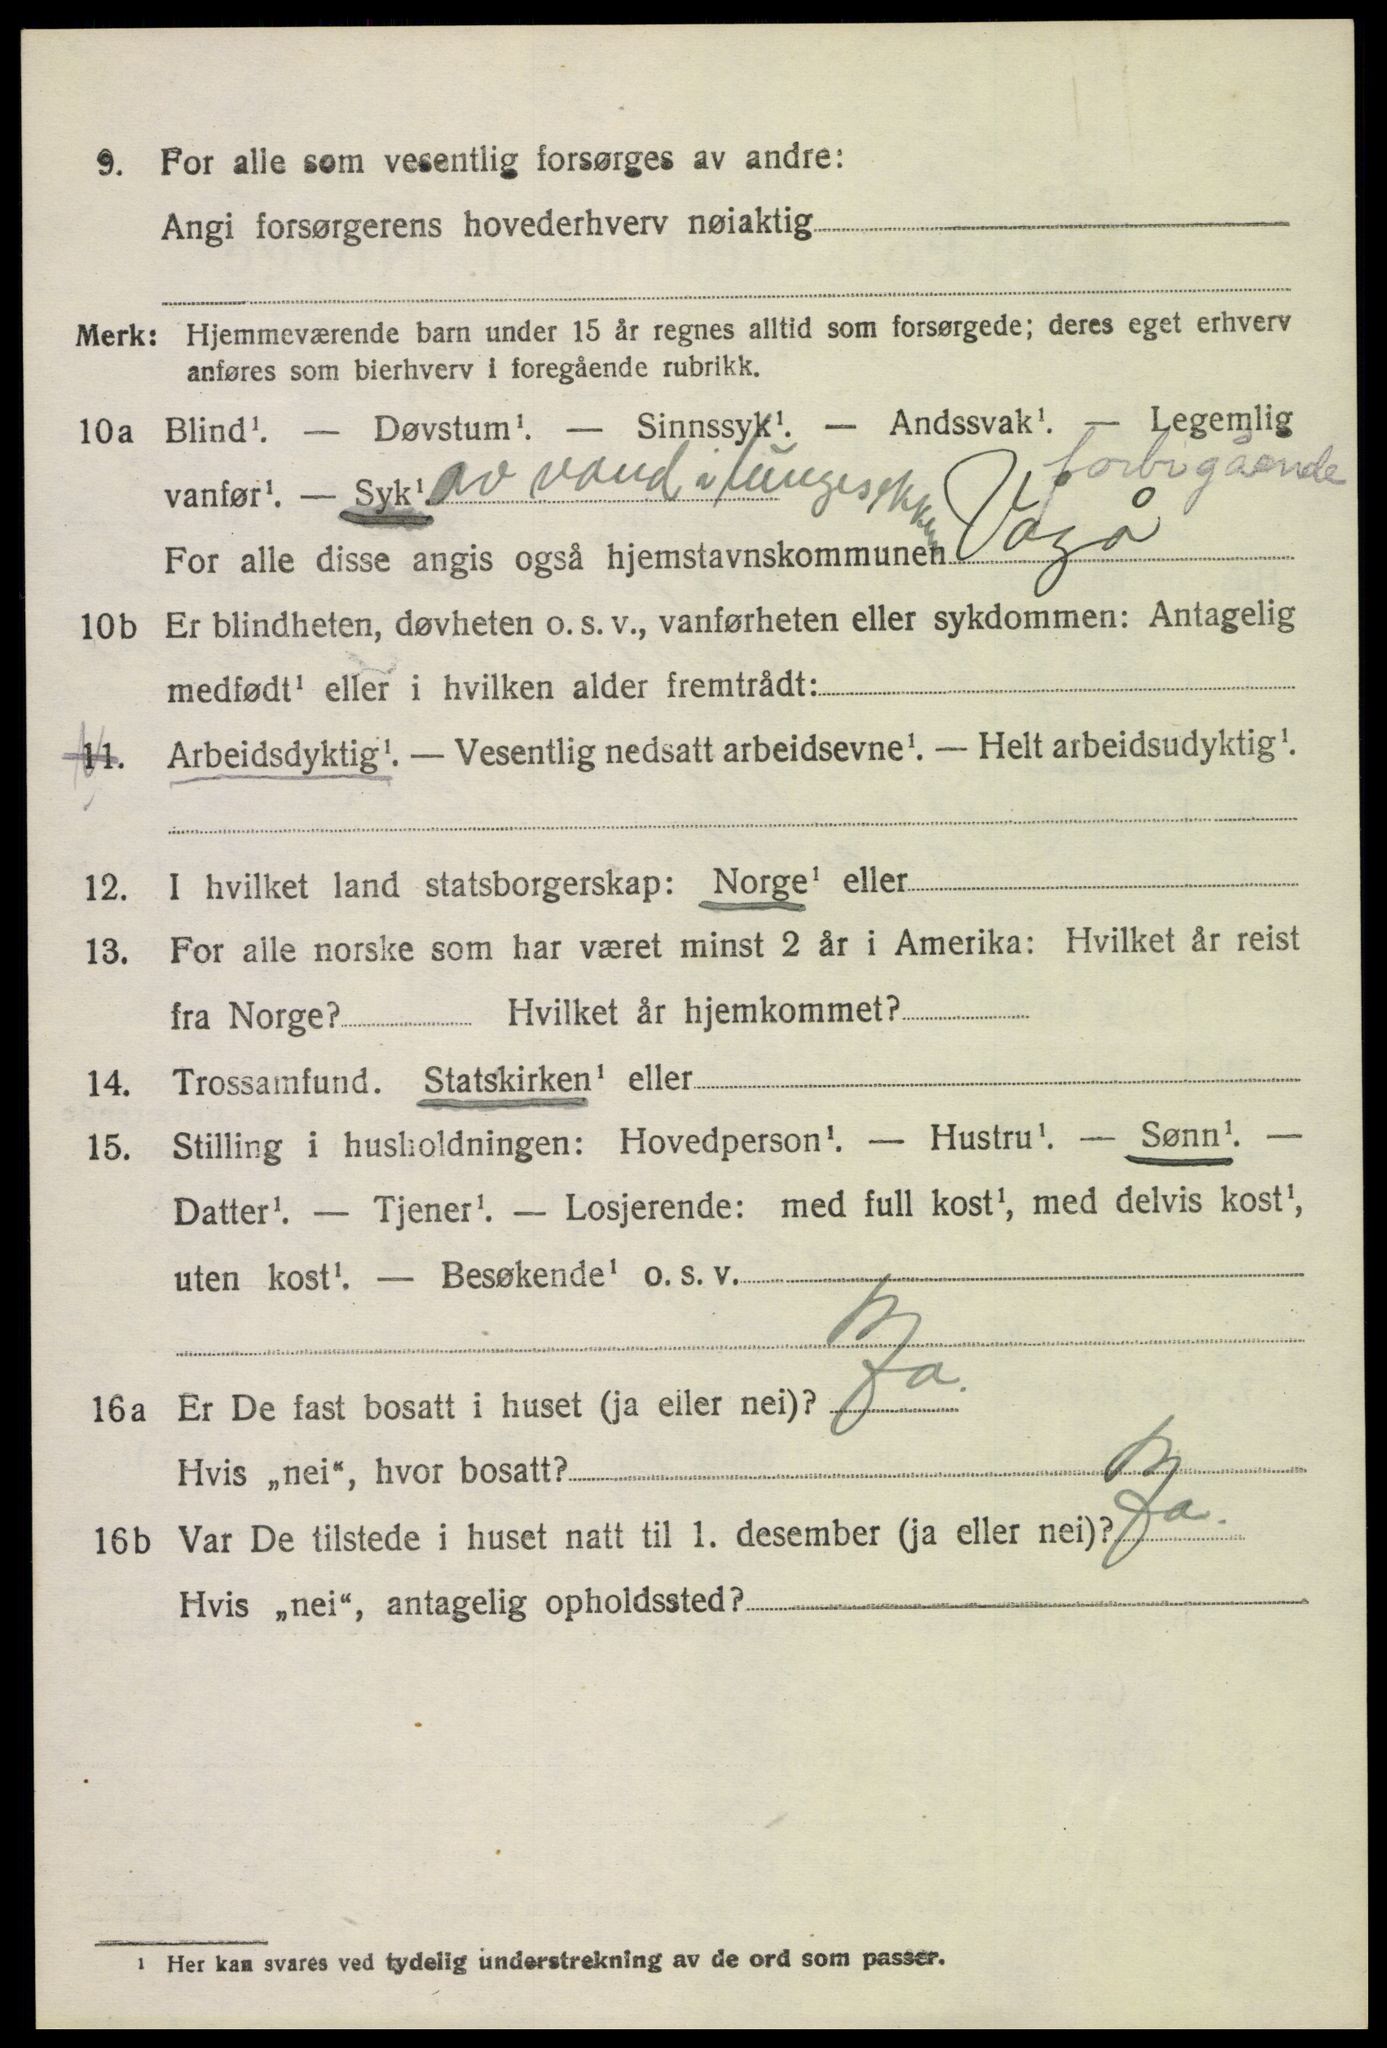 9. For alle som vesentlig forsørges av andre:
Angi forsørgerens hovederhverv nøiaktig
Merk: Hjemmeværende barn under 15 år regnes alltid som forsørgede; deres eget erhverv
anføres som bierhverv i foregående rubrikk.
10a Blind¹. — Døvstum¹. — Sinnssyk¹. — Andssvak¹. — Legemlig
forbigående
vanfør¹. — Syk¹. av vand i lungesekken
For alle disse angis også hjemstavnskommunen Vågå
10b Er blindheten, døvheten o. s. v., vanførheten eller sykdommen: Antagelig
medfødt¹ eller i hvilken alder fremtrådt:
11. Arbeidsdyktig¹. — Vesentlig nedsatt arbeidsevne¹. — Helt arbeidsudyktig¹.
12. I hvilket land statsborgerskap: Norge¹ eller
13. For alle norske som har været minst 2 år i Amerika: Hvilket år reist
fra Norge? Hvilket år hjemkommet?
14. Trossamfund. Statskirken¹ eller
15. Stilling i husholdningen: Hovedperson¹. — Hustru¹. — Sønn¹. —
Datter¹. — Tjener¹. — Losjerende: med full kost¹, med delvis kost¹,
uten kost¹. — Besøkende¹ o. s. v.
16a Er De fast bosatt i huset (ja eller nei)? Ja.
Hvis „nei“, hvor bosatt?
16b Var De tilstede i huset natt til 1. desember (ja eller nei)? Ja.
Hvis „nei“, antagelig opholdssted?
¹ Her kan svares ved tydelig understrekning av de ord som passer.